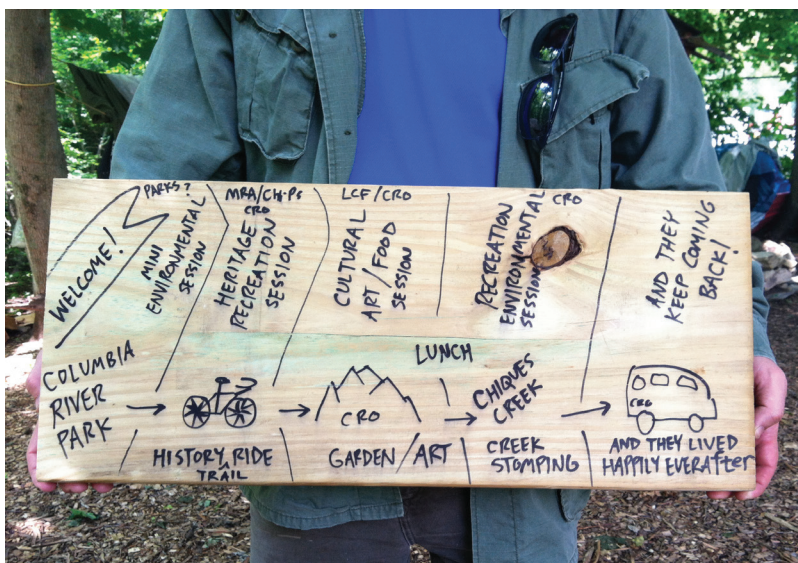 WELCOME!
PARKS?
MINI
ENVIRONMENTAL
SESSION
MRA/CHiPs
CRO
HERITAGE
RECREATION
SESSION
LCF/CRO
CULTURAL
ART/FOOD
SESSION
CRO
RECREATION
ENVIRONMENTAL
SESSION
AND THEY
KEEP COMING
BACK!
LUNCH
COLUMBIA
RIVER
PARK
CRO
CHIQUES
CREEK
CRO
HISTORY RIDE
TRAIL
GARDEN/ART
CREEK
STOMPING
AND THEY LIVED
HAPPILY EVERAfter